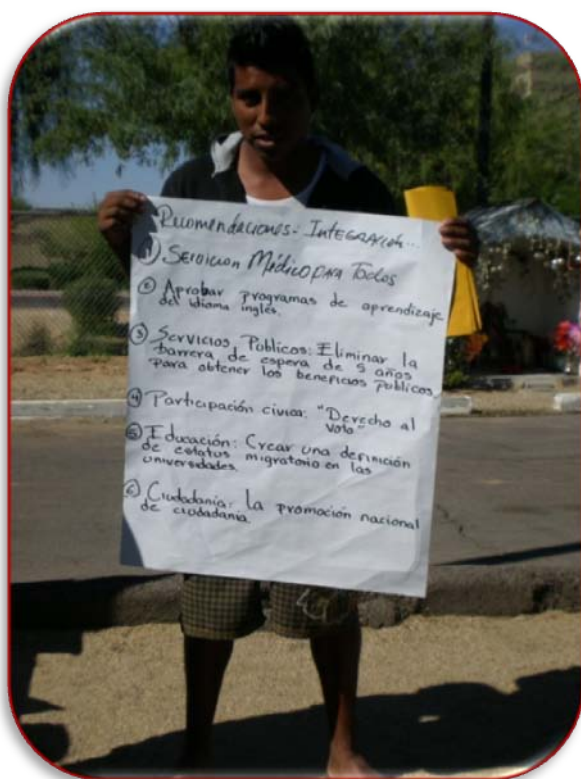 Recomendaciones: Integración...
① Servicion Médico para Todos
② Aprobar programas de aprendizaje
del idioma inglés.
③ Servicios Públicos: Eliminar la
barrera de espera de 5 años
para obtener los beneficios públicos.
④ Participación civica: "Derecho al
voto"
⑤ Educación: Crear una definición
de estatus migratorio en las
universidades.
⑥ Ciudadania: La promoción nacional
de ciudadania.